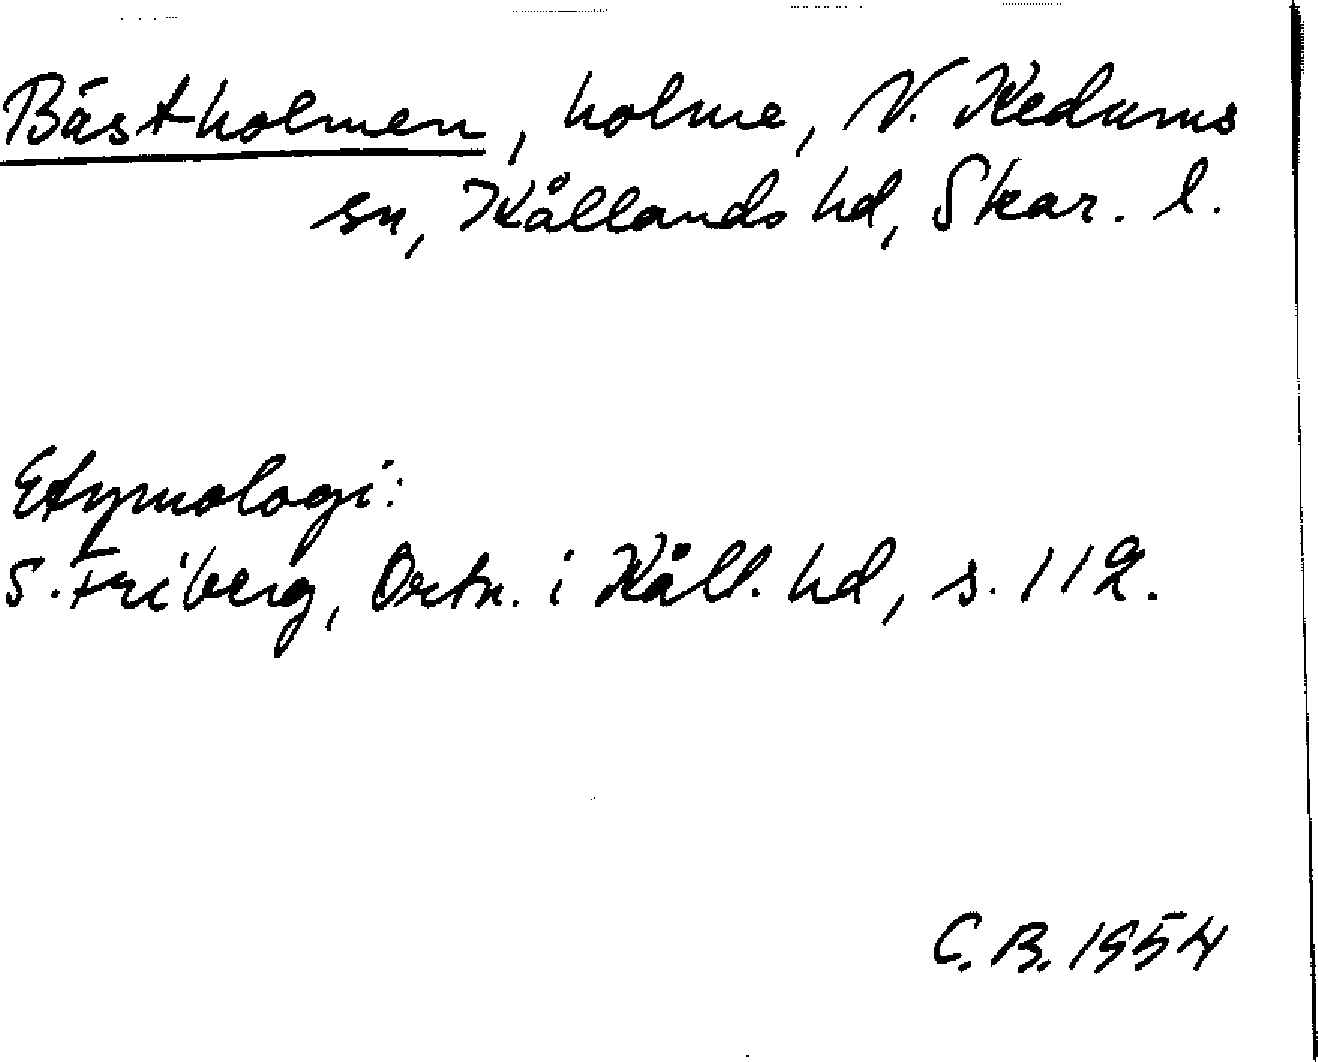 Bästholmen, holme, N. Kedums
sn, Kållands hd, Skar. l.
Etymologi:
S. Friberg, Ortn. i Kåll. hd, s. 112.
C. B. 1954